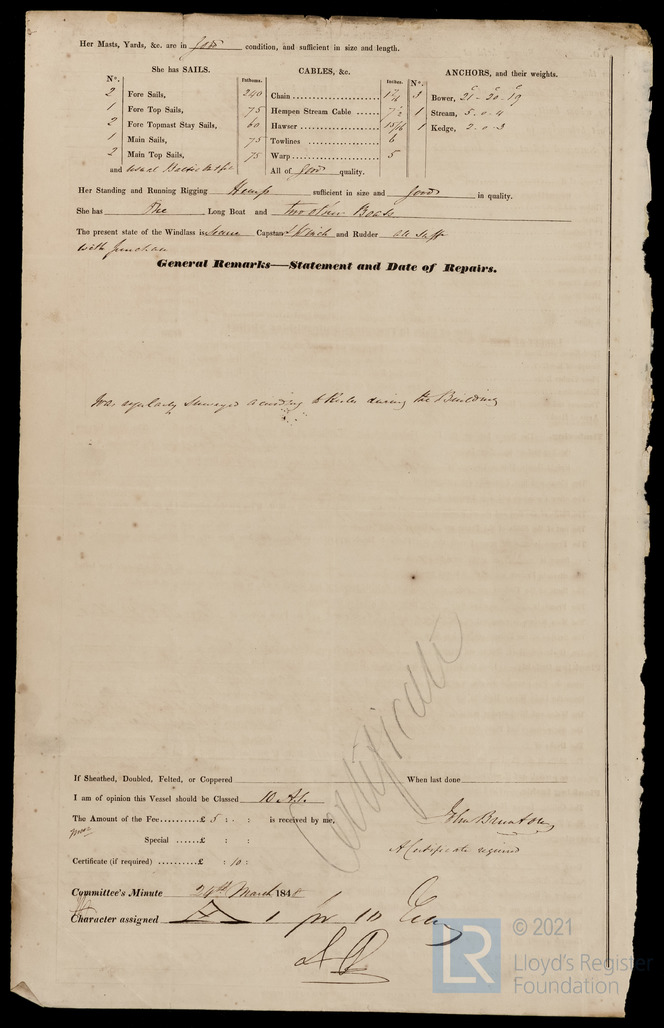 Her Masts, Yards, &c. are in good condition, and sufficient in size and length.
She has SAILS. CABLES, &c. ANCHORS, and their weights.
N°. Fathoms. Inches. N°.
2 Fore Sails, 240 Chain 3 Bower, 21 - 20 - 19
1 Fore Top Sails, 75 Hempen Stream Cable 7½ 1 Stream, 5 - 0 - 4
2 Fore Topmast Stay Sails, 60 Hawser 1 Kedge, 2 - 0 - 3
1 Main Sails, 75 Towlines 6
2 Main Top Sails, 75 Warp 5
and usual All of good quality.
Her Standing and Running Rigging Hemp sufficient in size and good in quality.
She has One Long Boat and two other Boats
The present state of the Windlass is Capstan and Rudder
General Remarks—Statement and Date of Repairs.
Was regularly Surveyed according to Rules during the Building
Certificate
If Sheathed, Doubled, Felted, or Coppered When last done
I am of opinion this Vessel should be Classed 10 A1.
The Amount of the Fee £ 5 : : is received by me,
John Brunton
Special £ : :
A Certificate required
Certificate (if required) £ : 10 :
Committee's Minute 24th March 1848
Character assigned A 1 for 10
© 2021
LR
Lloyd's Register
Foundation